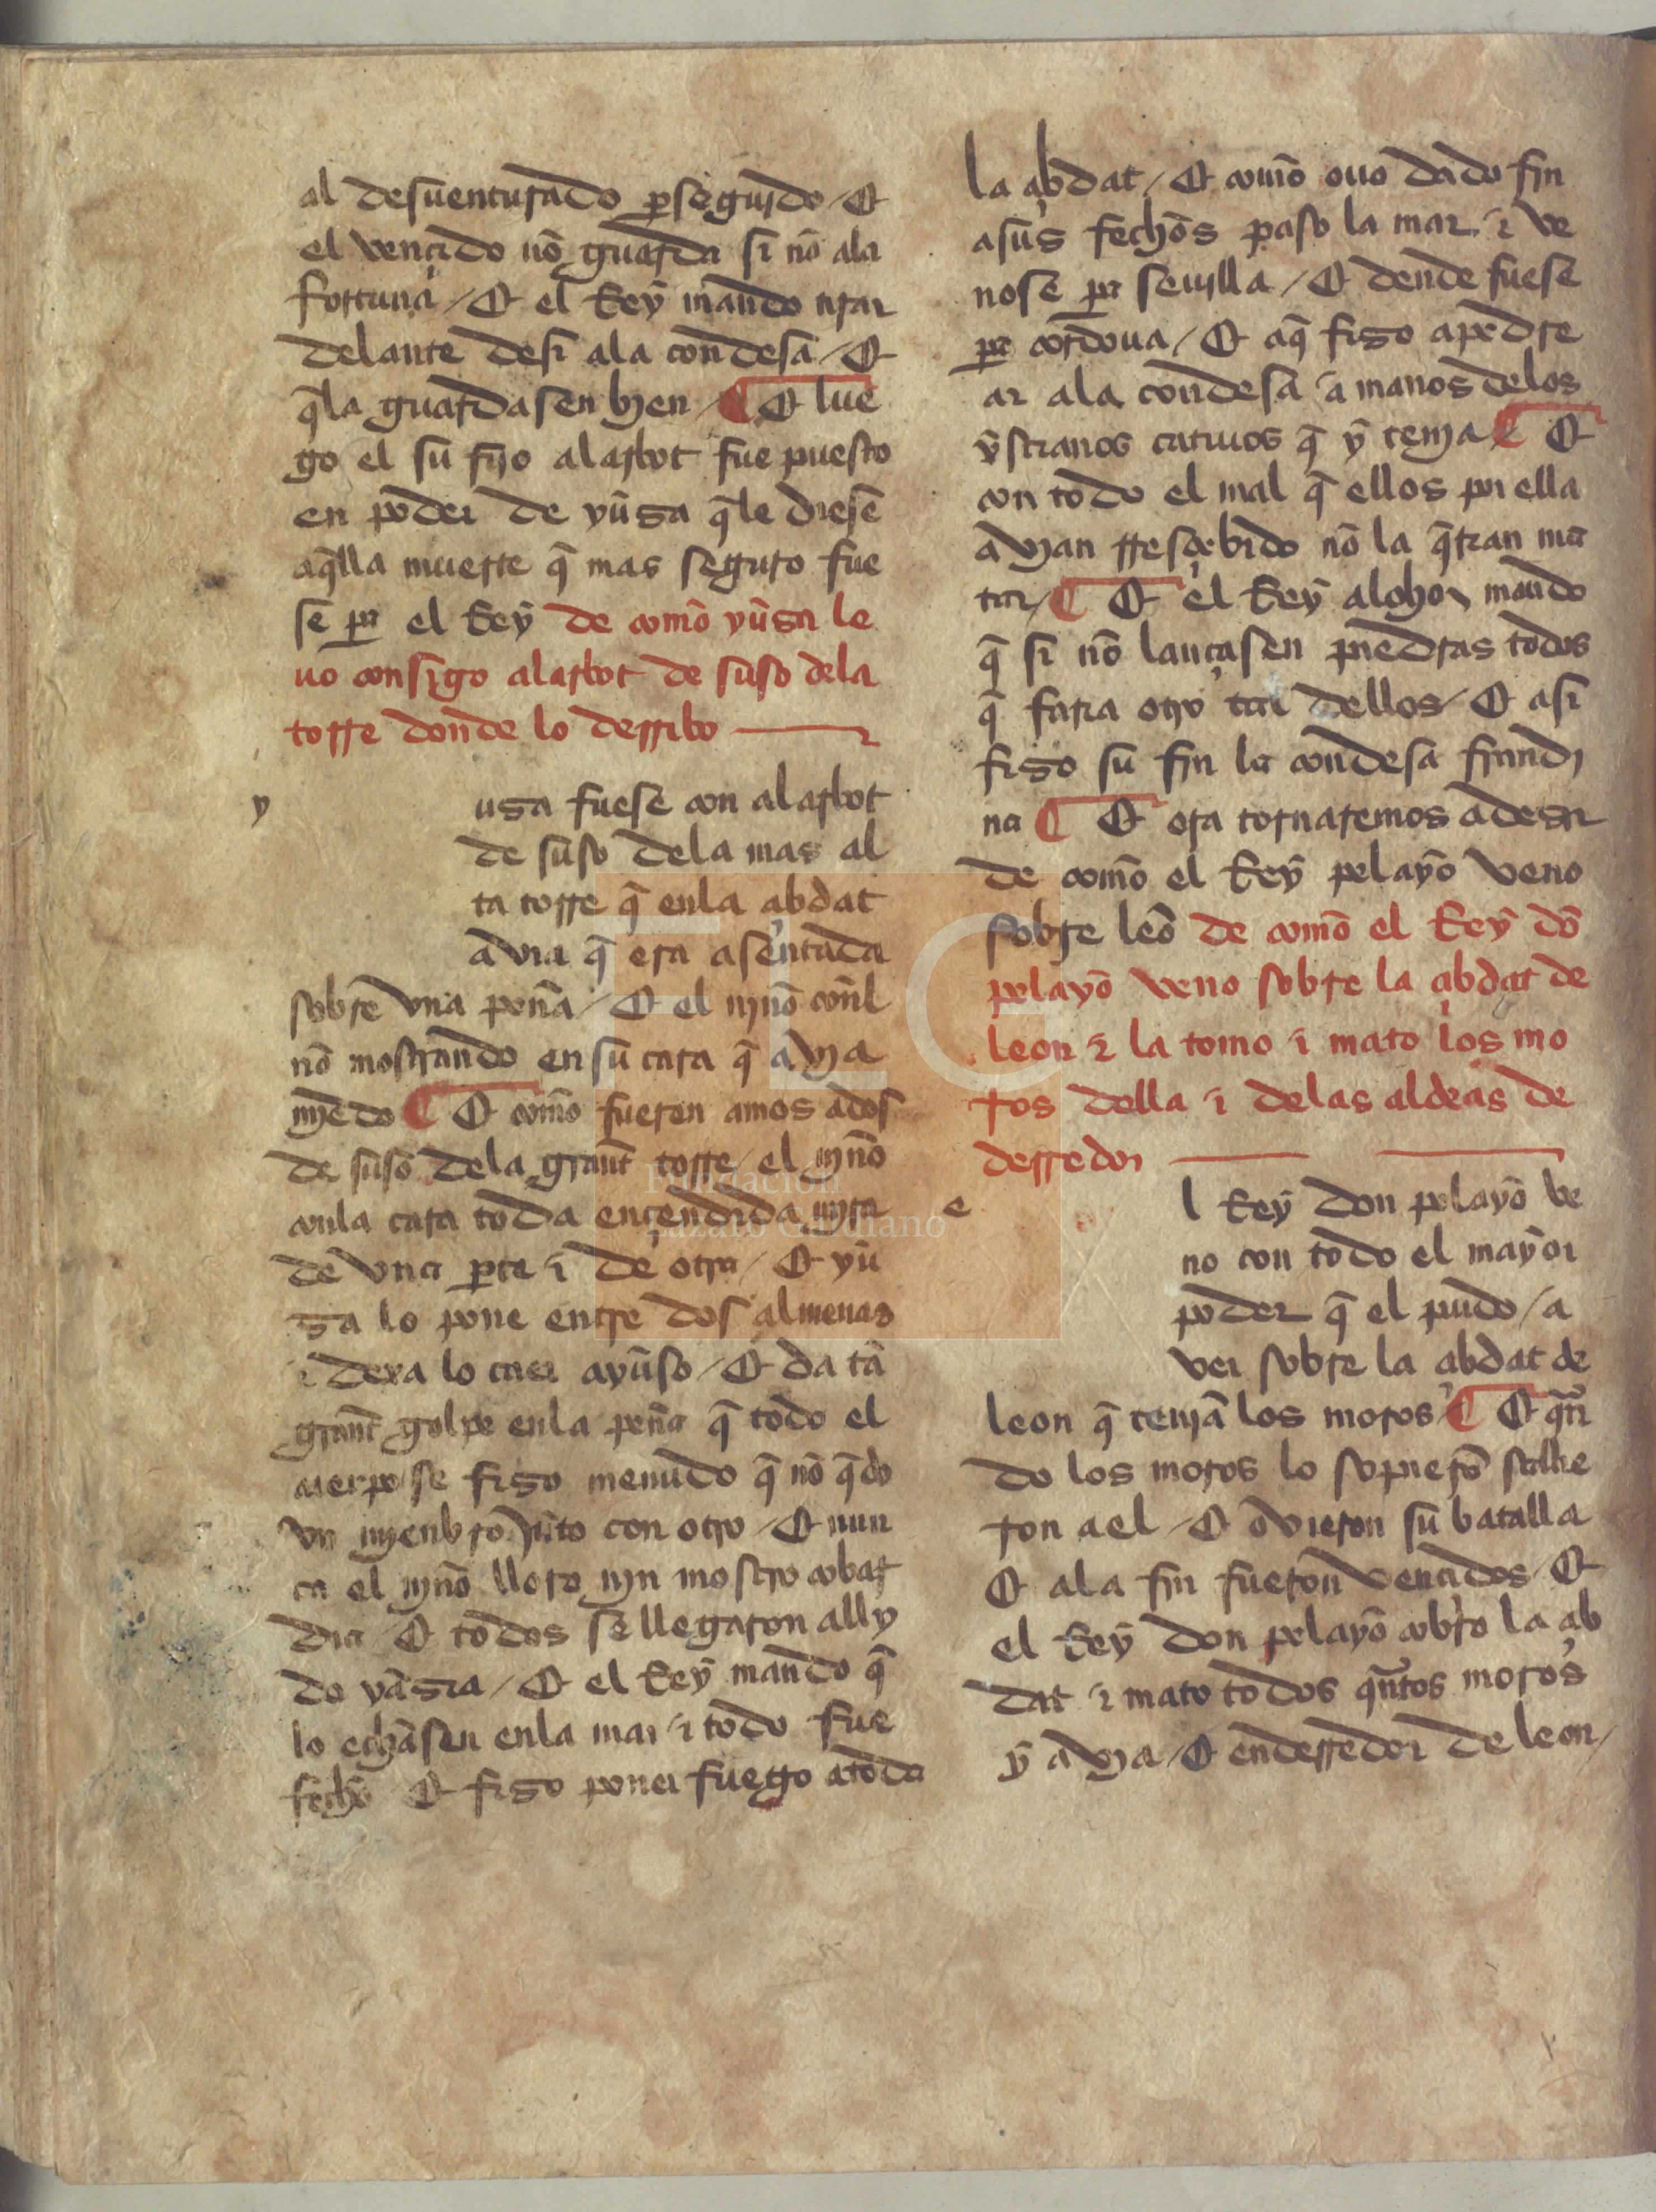 al desuenturado p̱seguido / Et
el vençido nō guarda si nō ala
fortuna / Et el Rey mando tirar
delante desi ala condesa / Et
q̄la guardasen bien ¶ Et lue
go el su fijo alarbot fue puesto
en poder de yūza q̄le diesē
aq̄lla muerte q̄ mas seguro fue
se pa el Rey de comō yūza le
uo consigo alarbot de suso dela
torre donde lo derribo
y uza fuese con alarbot
de suso dela mas al
ta torre q̄ enla çbdat
avia q̄ era asentada
sobre vna peña / Et el njño conel
nō mostrando en su cara q̄ avia
mjedo ¶ Et comō fueron amos ados
de suso dela grant torre / el njño
conla cara toda ençendida mjra
de vna p̱te i de otra / Et yū
za lo pone entre dos almenas
i dexa lo caer ayūso / Et da tā
grant golpe enla peña q̄ todo el
cuerpo se fizo menudo q̄ nō q̄do
vn mjenbro jūto con otro / Et nun
ca el njño lloro njn mostro cobar
dia Et todos se llegaron ally
do yazia / Et el Rey mando q̄
lo echasen enla mar i todo fue
fecho Et fizo poner fuego atoda
la çbdat / Et comō ouo dado fin
asus fechos paso la mar i ve
nose pa seuilla / Et dende fuese
pa cordoua / Et aq̄ fizo apedre
ar ala condesa / a manos delos
x̄stianos catiuos q̄ ȳ tenja ¶ Et
con todo el mal q̄ ellos por ella
avian rresçebido nō la q̄rian ma
tar / ¶ Et el Rey alohor mando
q̄ si nō lançasen piedras todos
q̄ faria otro tal dellos / Et asi
fizo su fin la condesa frandi
na ¶ Et ora tornaremos adezir
de comō el Rey pelayo veno
sobre leō de comō el Rey dō
pelayo veno sobre la çbdat de
leon i la tomo i mato los mo
ros della i delas aldeas de
derredor
e l Rey don pelayo ve
no con todo el mayor
poder q̄ el pudo / a
ver sobre la çbdat de
leon q̄ tenjā los moros ¶ Et q̄n
do los moros lo sopierō salie
ron a el / Et ovieron su batalla
Et ala fin fueron vençidos / Et
el Rey don pelayo cobro la çb
dat i mato todos q̄ntos moros
ȳ avia / Et enderredor de leon /
FLG
Fundación
Lázaro Galdiano